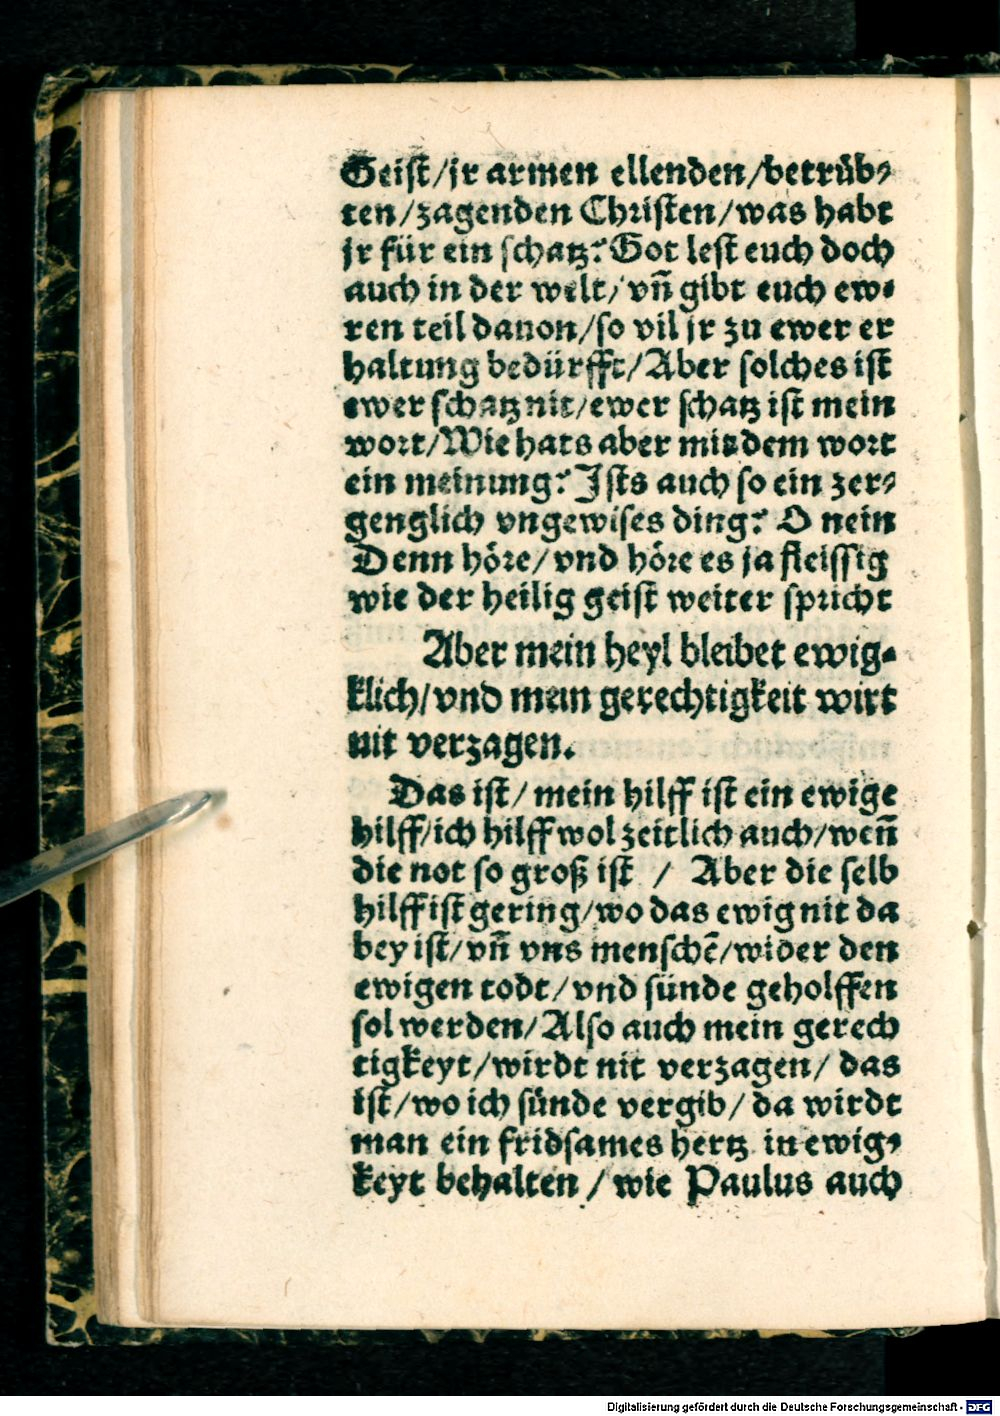 Geiſt/jr armen ellenden/betrüb⸗
ten/zagenden Chriſten/was habt
jr für ein ſchatz? Got leſt euch doch
auch in der welt/vñ gibt euch ew⸗
ren teil dauon/ſo vil jr zu ewer er
haltung bedürfft/Aber ſolches iſt
ewer ſchatz nit/ewer ſchatz iſt mein
wort/Wie hats aber mit dem wort
ein meinung? Iſts auch ſo ein zer⸗
genglich vngewiſes ding? O nein
Denn höre/vnd höre es ja fleiſſig
wie der heilig geiſt weiter ſpricht
Aber mein heyl bleibet ewig⸗
klich/vnd mein gerechtigkeit wirt
nit verzagen.
Das iſt/mein hilff iſt ein ewige
hilff/ich hilff wol zeitlich auch/weñ
die not ſo groß iſt / Aber die ſelb
hilff iſt gering/wo das ewig nit da
bey iſt/vñ vns menſchē/wider den
ewigen todt/vnd ſünde geholffen
ſol werden/Alſo auch mein gerech
tigkeyt/wirdt nit verzagen/das
iſt/wo ich ſünde vergib/da wirdt
man ein fridſames hertz in ewig⸗
keyt behalten/wie Paulus auch
Digitalisierung gefördert durch die Deutsche Forschungsgemeinschaft - DFG